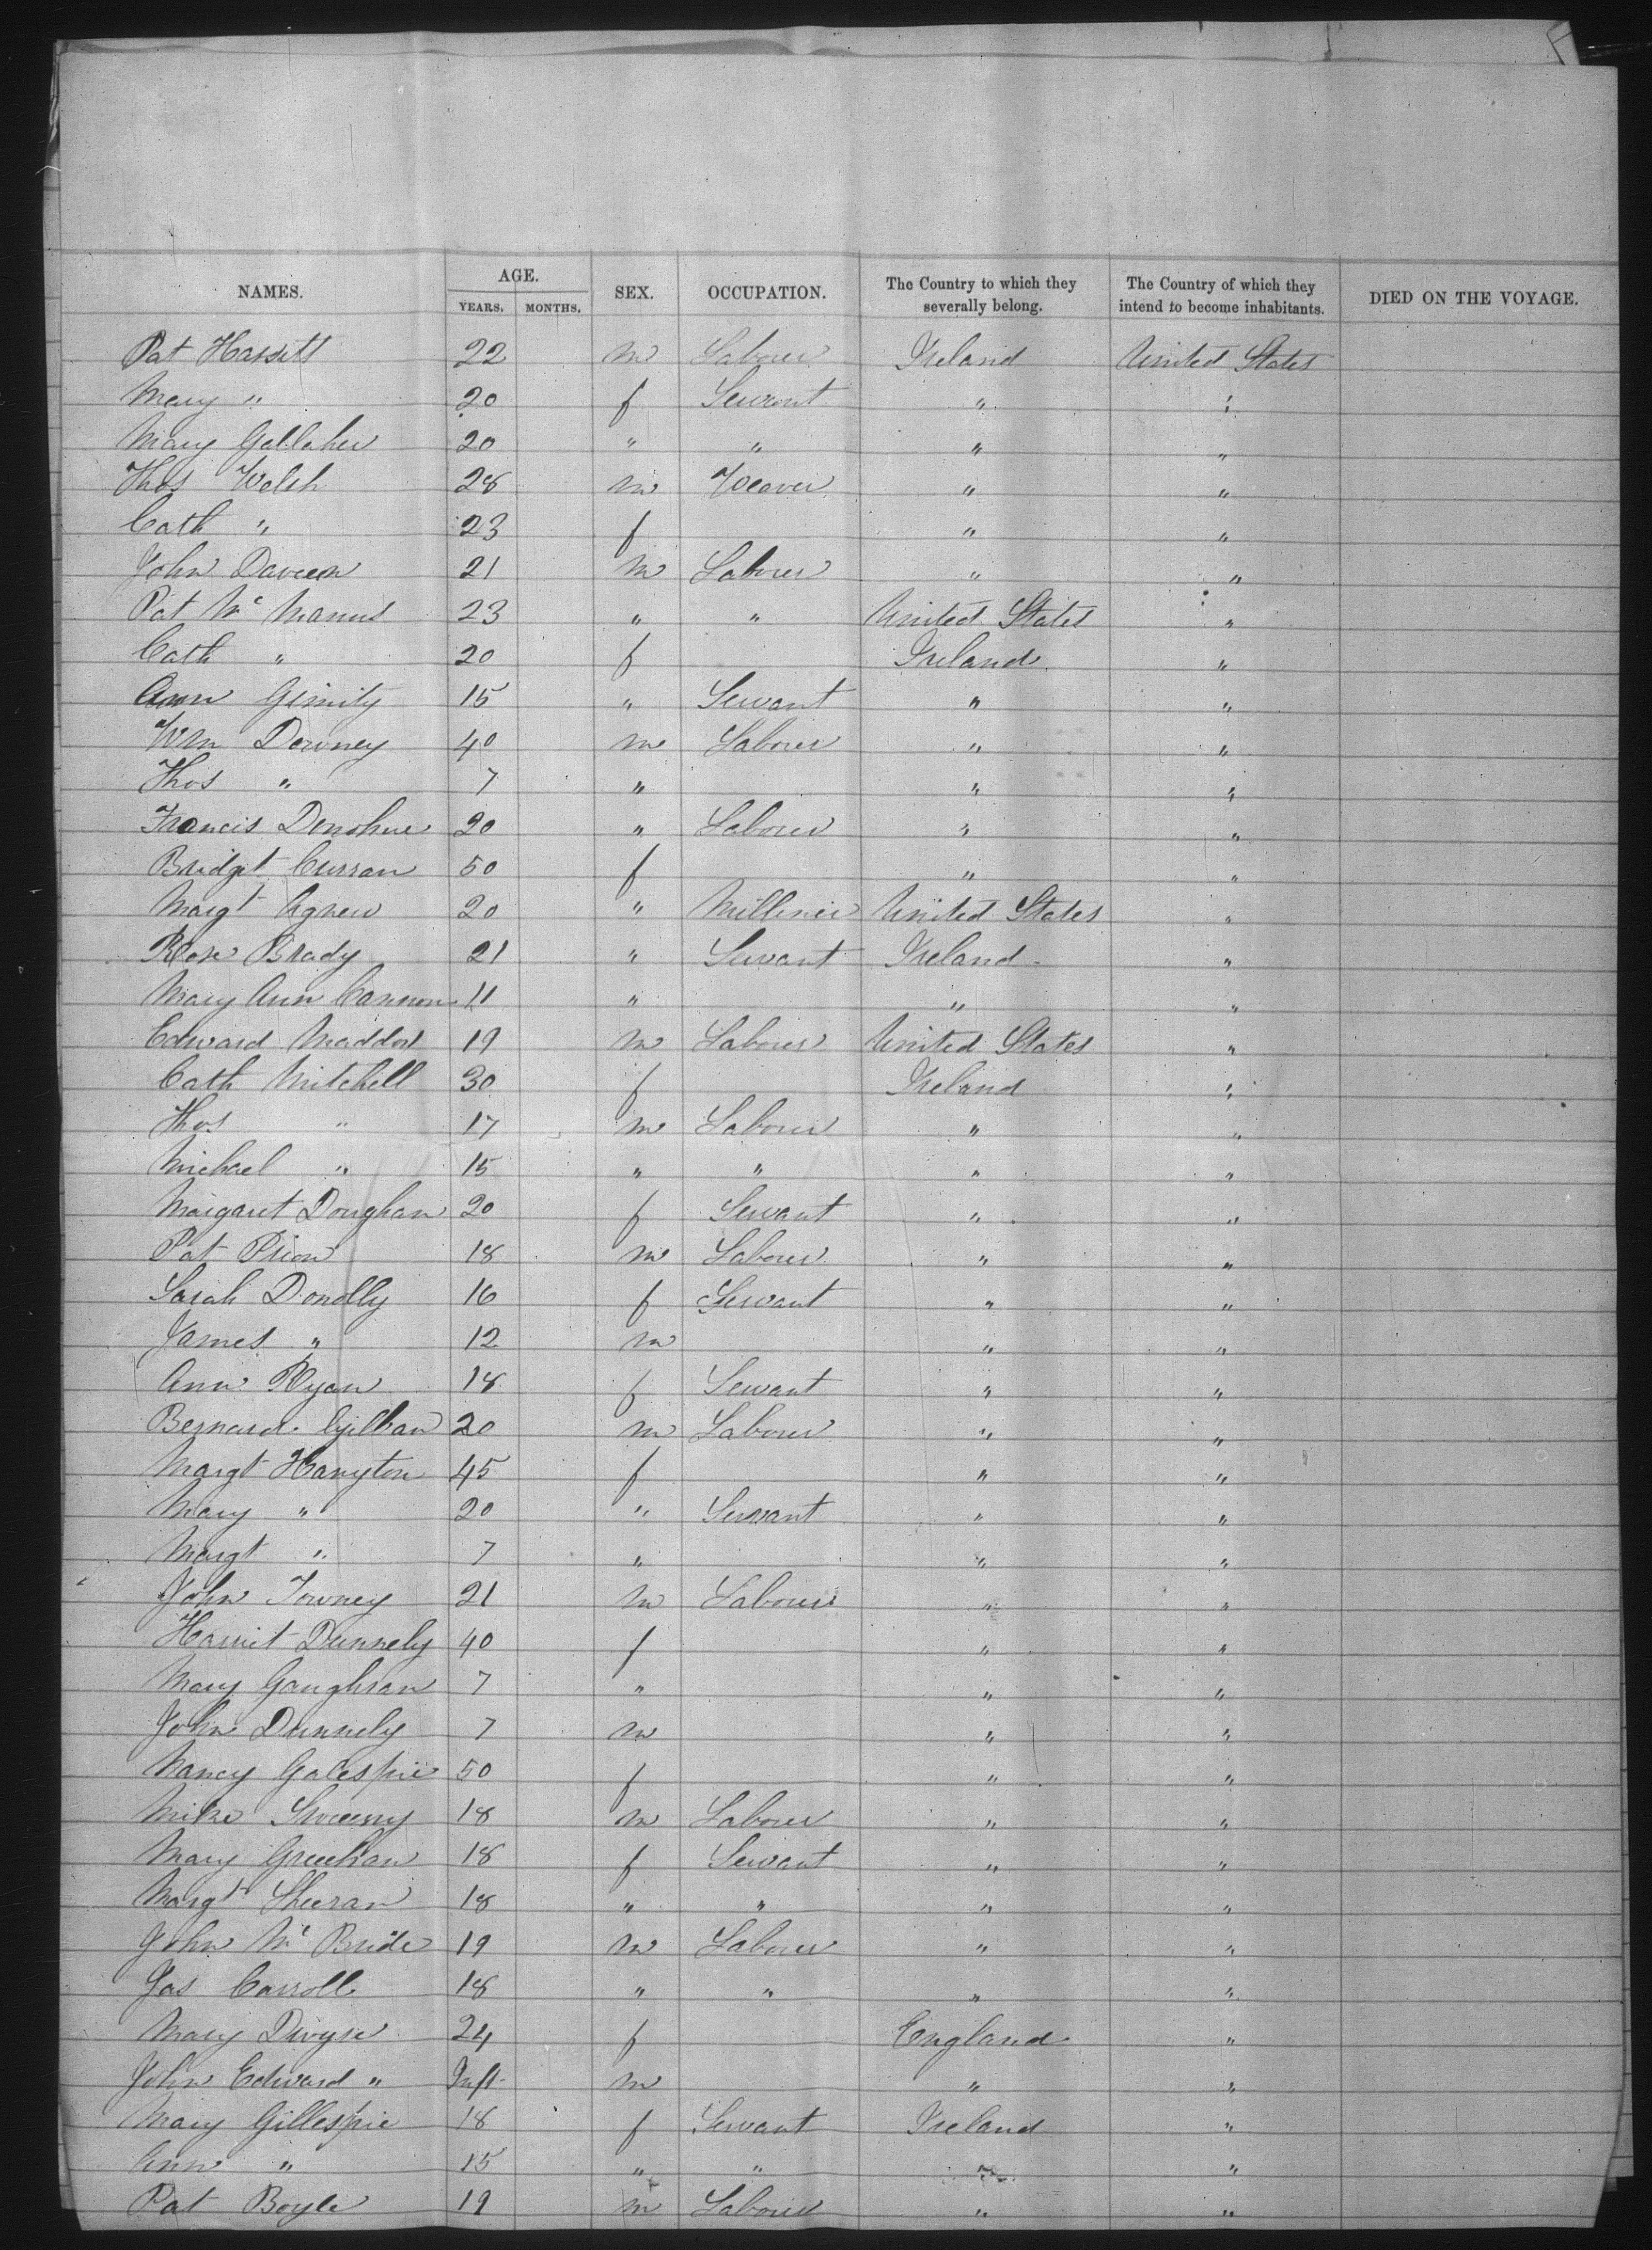 NAMES. AGE. YEARS. MONTHS. SEX. OCCUPATION. The Country to which they severally belong. The Country of which they intend to become inhabitants. DIED ON THE VOYAGE.
Pat Hassett 22 m Laborer Ireland United States
Mary " 20 f Servant " "
Mary Gallaher 20 " " " "
Thos Welsh 28 m Weaver " "
Cath " 23 f " "
John Daveen 21 m Laborer " "
Pat Mc Manus 23 " " United States "
Cath " 20 f Ireland "
Ann Ginity 15 " Servant " "
Wm Downey 40 m Laborer " "
Thos " 7 " " "
Francis Donohue 20 " Laborer " "
Bridget Curran 50 f " "
Margt Agnew 20 " Milliner United States "
Rose Brady 21 " Servant Ireland "
Mary Ann Cannon 11 " " "
Edward Maddox 19 m Laborer United States "
Cath Mitchell 30 f Ireland "
Thos " 17 m Laborer " "
Michael " 15 " " " "
Margaret Doughan 20 f Servant " "
Pat Prior 18 m Laborer " "
Sarah Donolly 16 f Servant " "
James " 12 m " "
Ann Ryan 18 f Servant " "
Bernard 20 m Laborer " "
Margt Hanyton 45 f " "
Mary " 20 " Servant " "
Margt " 7 " " "
John Towney 21 m Laborer " "
Harriet Dunnely 40 f " "
Mary Gaughran 7 " " "
John Dunnely 7 m " "
Nancy Galespie 50 f " "
Mike Sweeny 18 m Laborer " "
Mary Greehan 18 f Servant " "
Margt Sheeran 18 " " " "
John Mc Bride 19 m Laborer " "
Jas Carroll 18 " " " "
Mary Dwyse 24 f England "
John Edward " Inft m " "
Mary Gillespie 18 f Servant Ireland "
Ann " 15 " " " "
Pat Boyle 19 m Laborer " "